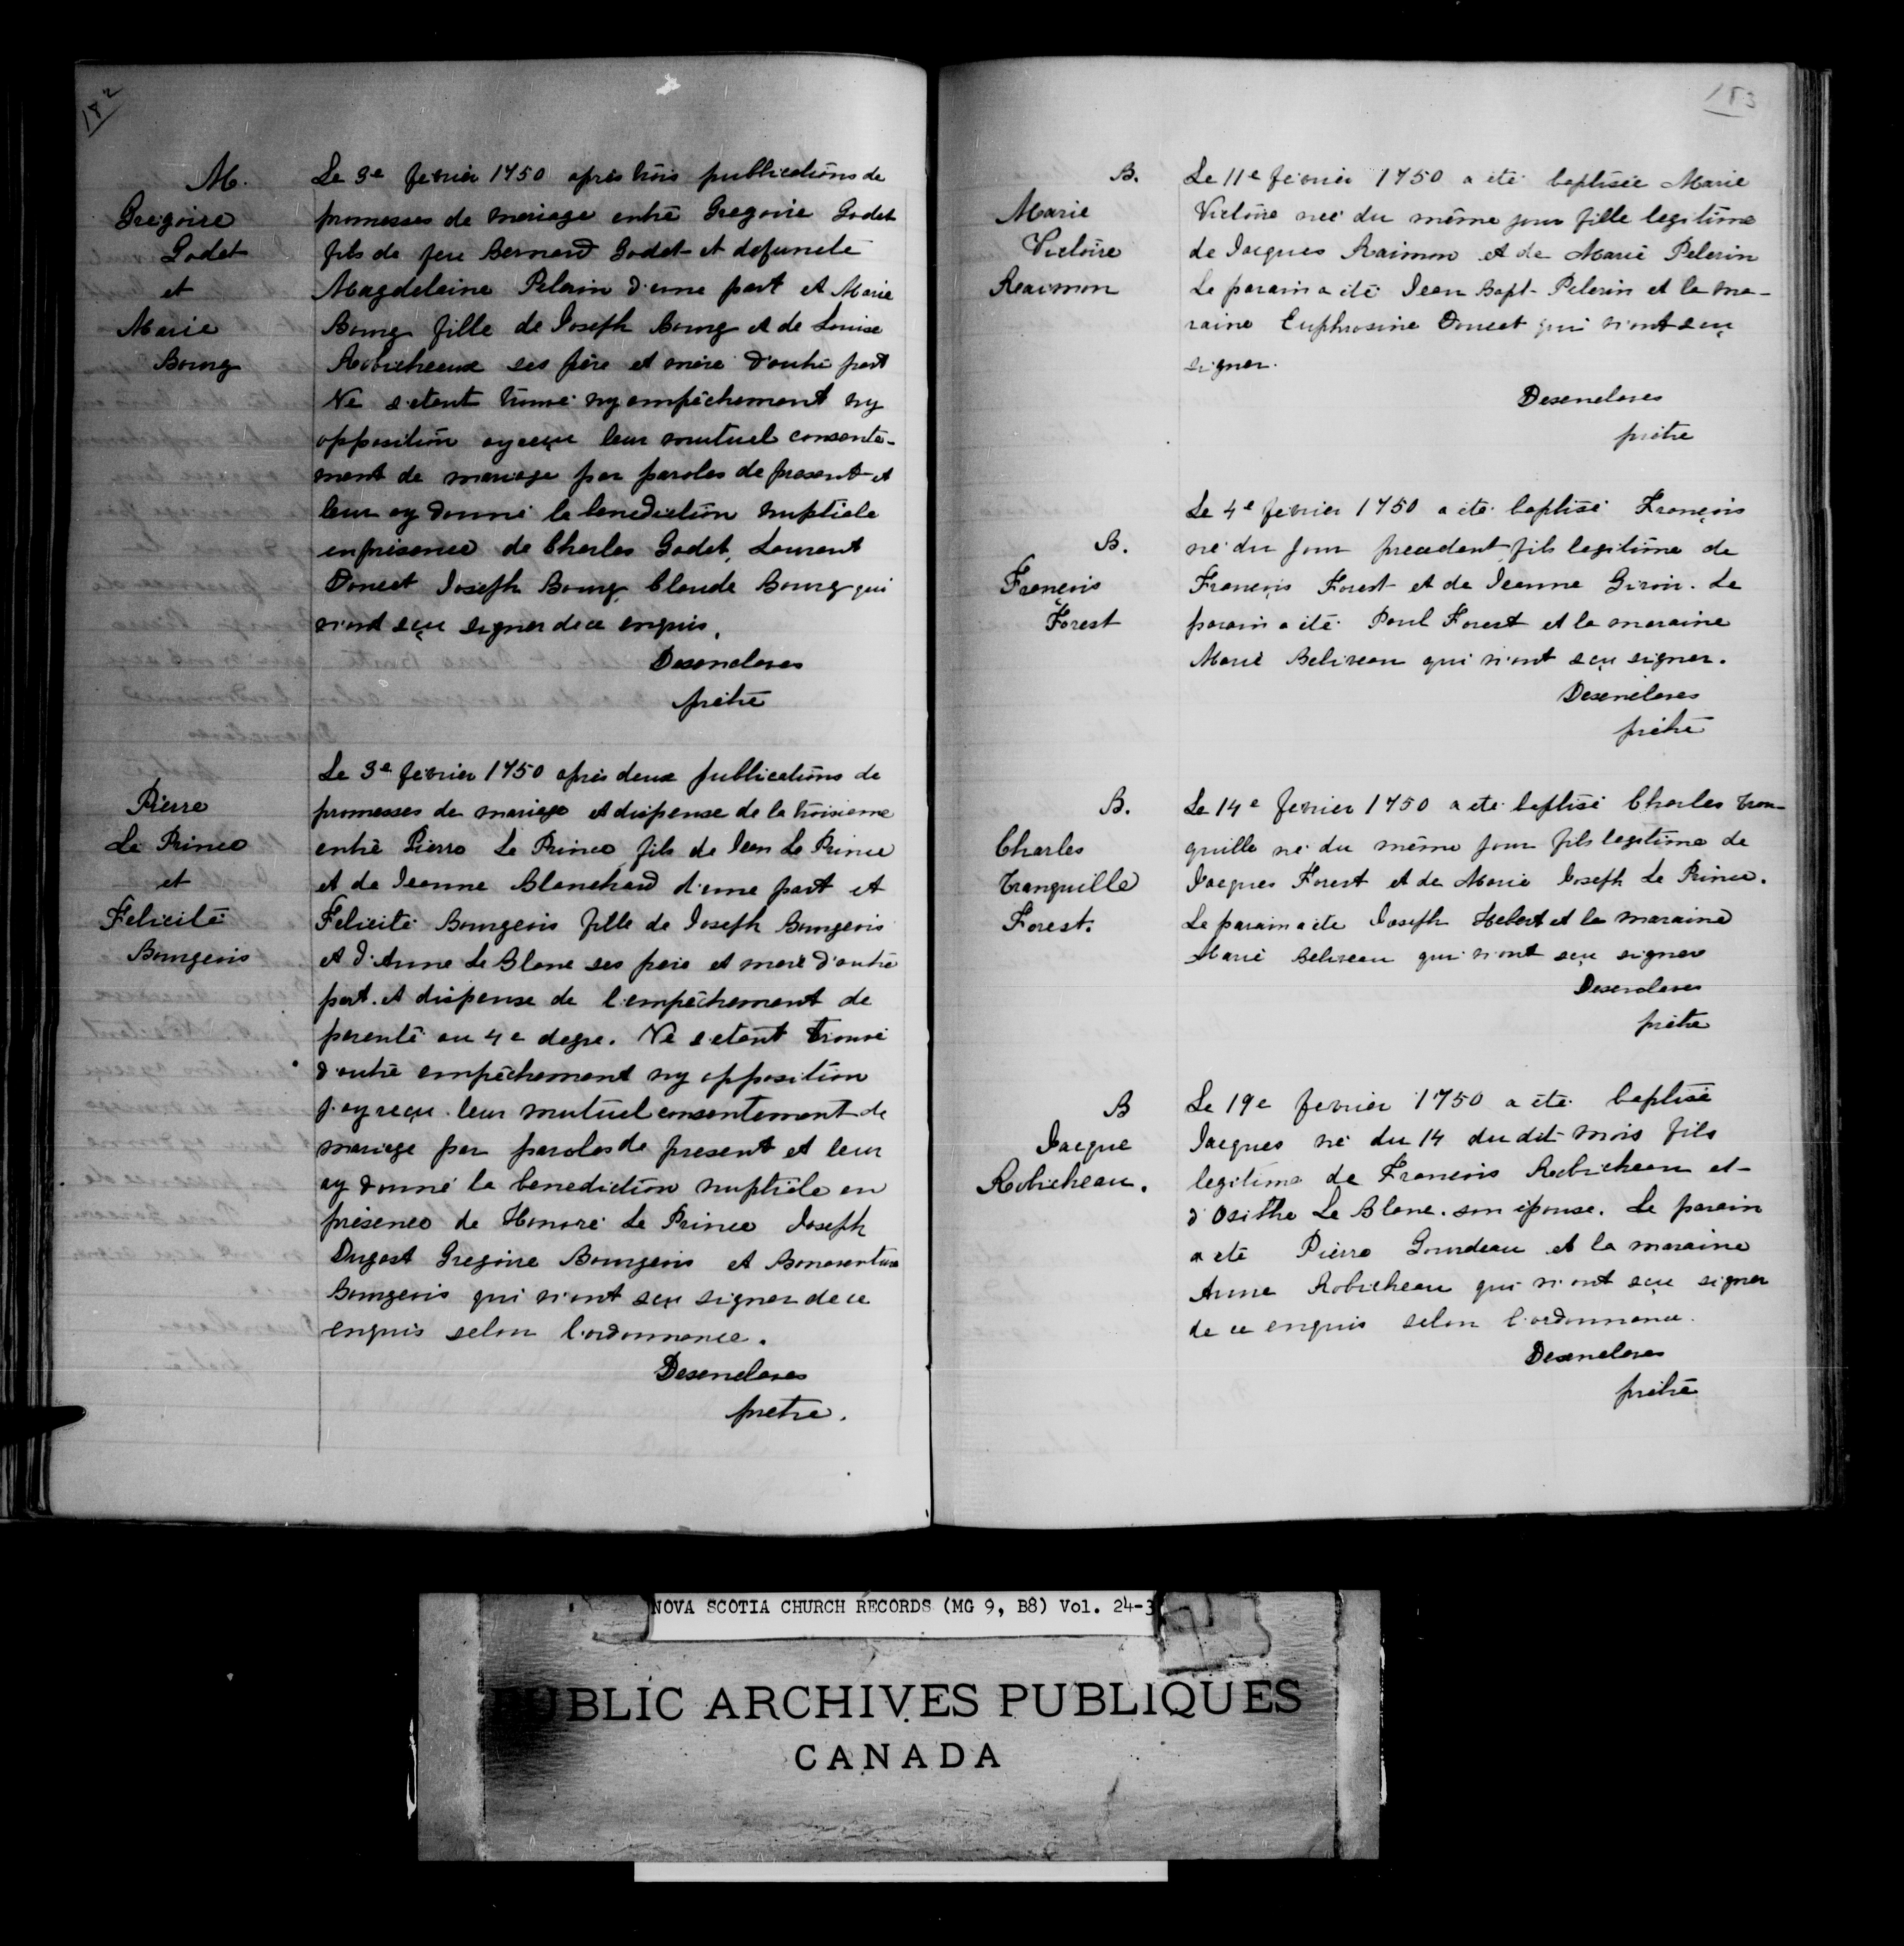 182
M.
Gregoire
Godet
et
Marie
Bourg
Le 3e fevrier 1750 après trois publications de
promesses de mariage entre Gregoire Godet
fils de feu Bernard Godet et defuncte
Magdeleine Pelerin d'une part et Marie
Bourg fille de Joseph Bourg et de Louise
Robicheaux ses père et mère d'autre part
Ne s'etant trouvé ny empêchement ny
opposition ay reçu leur mutuel consente-
ment de mariage par paroles de present et
leur ay donné la benediction nuptiale
en présence de Charles Godet, Laurent
Doucet Joseph Bourg, Claude Bourg qui
n'ont sçu signer de ce enquis.
Desenclaves
prêtre
Pierre
Le Prince
et
Felicité
Bourgeois
Le 3e fevrier 1750 après deux publications de
promesses de mariage et dispense de la troisieme
entre Pierre Le Prince fils de Jean Le Prince
et de Jeanne Blanchard d'une part et
Felicité Bourgeois fille de Joseph Bourgeois
et d'Anne Le Blanc ses père et mère d'autre
part. et dispense de l'empêchement de
parenté au 4e degre. Ne s'etant trouvé
d'autre empêchement ny opposition
j'ay reçu leur mutuel consentement de
mariage par paroles de present et leur
ay donné la benediction nuptiale en
présence de Honoré Le Prince Joseph
Dugast Gregoire Bourgeois et Bonaventure
Bourgeois qui n'ont sçu signer de ce
enquis selon l'ordonnance.
Desenclaves
pretre.
183
B.
Marie
Victoire
Raimon
Le 11e fevrier 1750 a été baptisée Marie
Victoire née du même jour fille legitime
de Jacques Raimon et de Marie Pelerin
Le parain a été Jean Bapt. Pelerin et la ma-
raine Euphrosine Doucet qui n'ont sçu
signer.
Desenclaves
prêtre
B.
François
Forest
Le 4e fevrier 1750 a été baptisé François
né du jour precedent fils legitime de
François Forest et de Jeanne Giroir. Le
parain a été Paul Forest et la maraine
Marie Beliveau qui n'ont sçu signer.
Desenclaves
prêtre
B.
Charles
Tranquille
Forest.
Le 14e fevrier 1750 a été baptisé Charles Tran-
quille né du même jour fils legitime de
Jacques Forest et de Marie Joseph Le Prince.
Le parain a été Joseph Hebert et la maraine
Marie Beliveau qui n'ont sçu signer
Desenclaves
prêtre
B
Jacque
Robicheau.
Le 19e fevrier 1750 a été baptisé
Jacques né du 14 du dit mois fils
legitime de François Robicheau et
d'Osithe Le Blanc. son épouse. Le parain
a été Pierre Gourdeau et la maraine
Anne Robicheau qui n'ont sçu signer
de ce enquis selon l'ordonnance.
Desenclaves
prêtre
NOVA SCOTIA CHURCH RECORDS (MG 9, B8) Vol. 24-3
PUBLIC ARCHIVES PUBLIQUES
CANADA